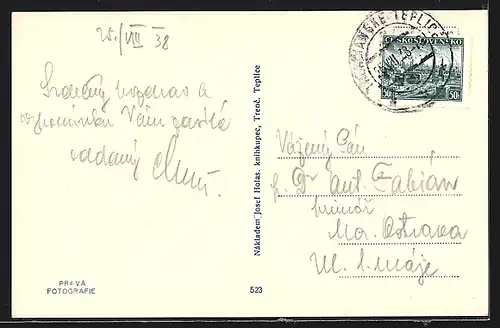 25./VIII 38
Srdečný pozdrav a
vzpomínku Vám zasílá
oddaný
PRAVÁ
FOTOGRAFIE
Nákladem Josef Holas, knihkupec, Trenč. Teplice
523
TRENČIANSKE TEPLICE
ČESKOSLOVENSKO
50h
Vážený Pán
p. Dr Ant. Fabián
primář
Mor. Ostrava
Ul. 1. máje